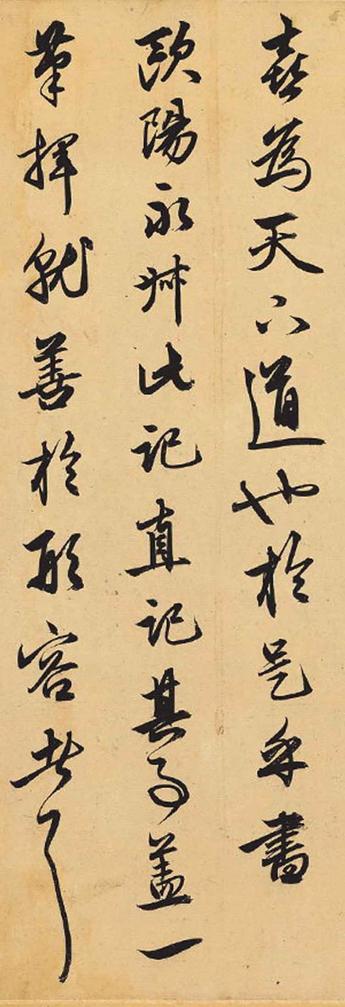 喜為天下道也於是乎書
歐陽永叔此記直記其事蓋一
筆揮就善於形容者了